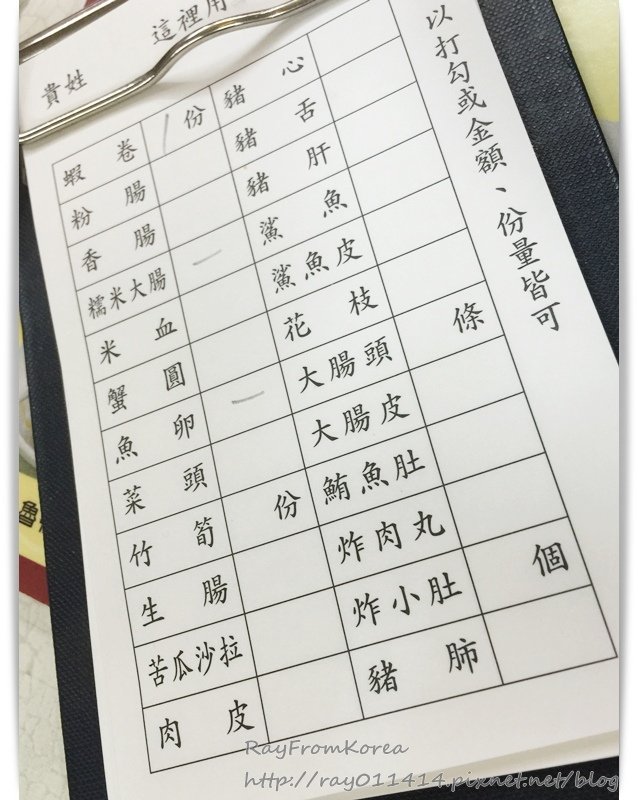 貴姓 這裡用
以打勾或金額、份量皆可
蝦卷 1份 豬心
粉腸 豬舌
香腸 豬肝
糯米大腸 一 鯊魚
米血 鯊魚皮
蟹圓 花枝
魚卵 一 大腸頭 條
菜頭 大腸皮
竹筍 份 鮪魚肚
生腸 炸肉丸
苦瓜沙拉 炸小肚 個
肉皮 豬肺
RayFromKorea
http://ray011414.pixnet.net/blog